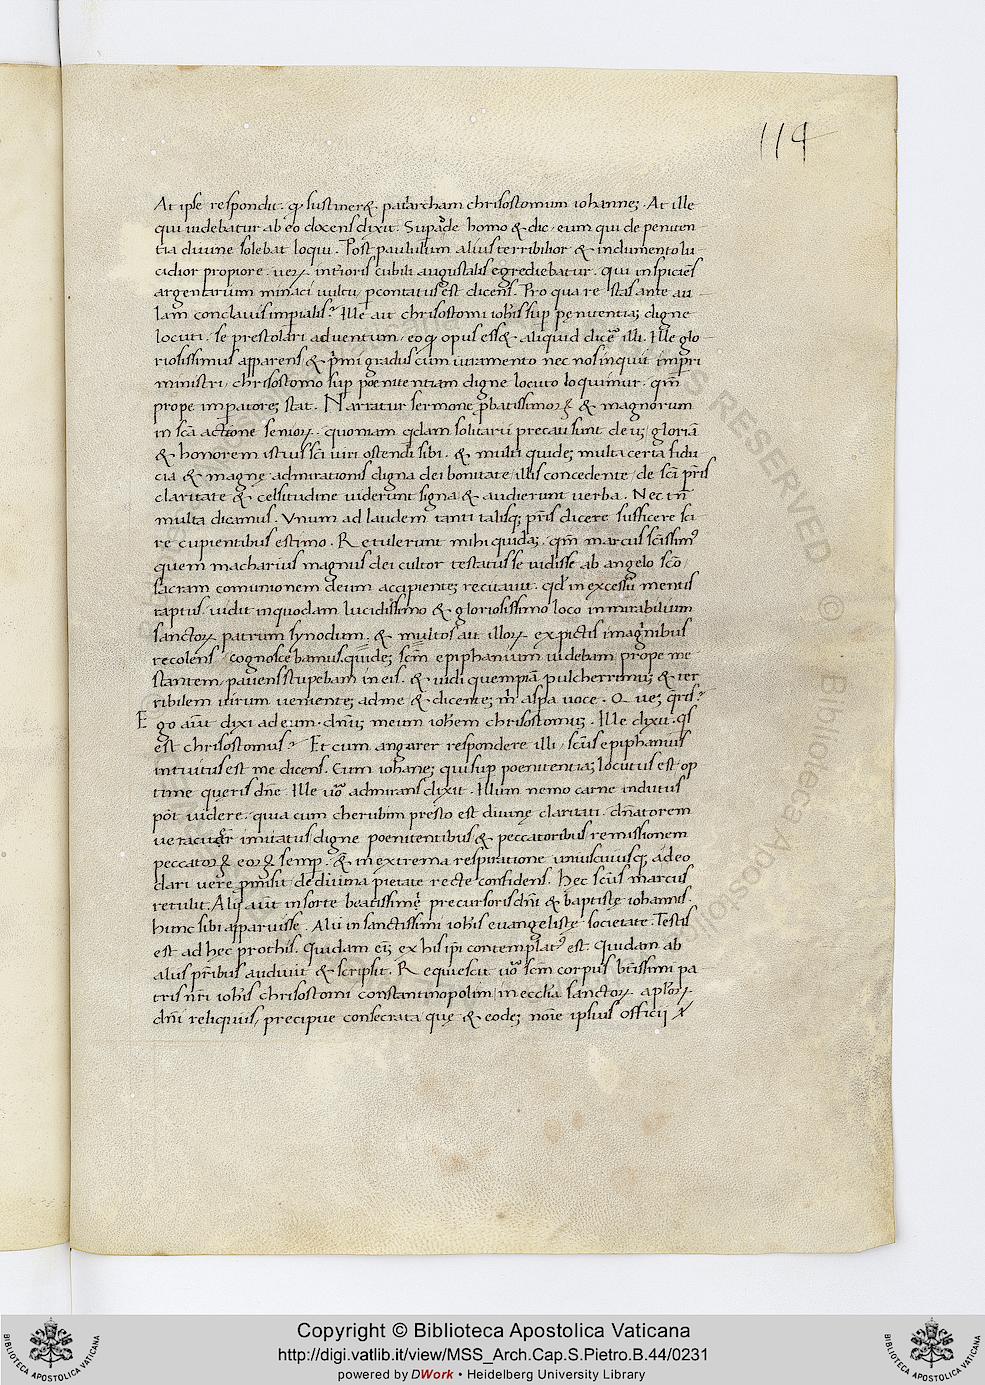 114
At ipse respondit. qd sustineret patriarcham chrisostomum iohannem. At ille
qui videbatur ab eo docens dixit. Suprade homo & dic. eum qui de peniten-
tia divine solebat loqui. Post paululum alius terribilior & indumento lu-
cidior propiore. interioris cubili augustalis egrediebatur. qui inspiciens
argentarium minaci vultu pcontatus est dicens. Pro qua re stas ante au-
lam conclavis impialis? Ille ait chrisostomi iohis sup penitentiam digne
locuti. se prestolari adventum. eo qd opus esset aliquid dicere illi. Ille glo-
riosissimus apparens & pmi gradus cum iuramento nec nos inquit impri
ministri. chrisostomo sup poenitentiam digne locuto loquimur. qm
prope impatorem stat. Narratur sermone pbatissimorum & magnorum
in sca actione seniorum. quoniam qdam solitarii precati sunt deum gloria
& honorem istius sci viri ostendi sibi. & multi quidem multa certa fidu
cia & magne admirationis digna dei bonitate illis concedente de sci pris
claritate & celsitudine viderunt signa & audierunt verba. Nec tn
multa dicamus. Unum ad laudem tanti talisq; pris dicere sufficere sci
re cupientibus estimo. Retulerunt mihi quidam. qm marcus scissim9
quem macharius magnus dei cultor testatus se vidisse ab angelo sco
sacram comunionem deum accipientem recitavit. qd in excessu mentis
raptus. vidit in quodam lucidissimo & gloriosissimo loco in mirabilium
sanctorum patrum synodum. & multos ait illorum ex pictis imaginibus
recolens cognoscebamus. quidem scm epiphanium videbam prope me
stantem. pavens stupebam in eis. & vidi quempiam pulcherrimum & ter
ribilem virum venientem ad me & dicentem m aspa voce. Q vem qris?
Ego aiut dixi ad eum. dnm meum iohem chrisostomum. Ille dixit. qs
est chrisostomus? Et cum angarer respondere illi. scus epiphanius
intuitus est me dicens. Eum iohanem qui sup poenitentiam locutus est op
time queris dne. Ille vo admirans dixit. Illum nemo carne indutus
pot videre. quia cum cherubim presto est divine claritati. dnatorem
veraciter imitatus digne poenitentibus & peccatoribus remissionem
peccatorum eorum semp. & in extrema respiratione uniuscuiusq; a deo
dari vere pmisit de divina pietate recte confidens. Hec scus marcus
retulit. Alii aiut in sorte beatissime precursoris dni & baptiste iohannis
hunc sibi apparuisse. Alii in sanctissimi iohis evangeliste societate. Testis
est ad hec prothis. Quidam ex his ipi contemplat9 est. Quidam ab
aliis pribus audivit & scripsit. Requiescit vo scm corpus btissimi pa-
tris nri iohis chrisostomi constantinopolim in ecclia sanctorum aplorum
dni reliquiis, precipue consecrata que & eodem noie ipsius officii
Copyright © Biblioteca Apostolica Vaticana
http://digi.vatlib.it/view/MSS_Arch.Cap.S.Pietro.B.44/0231
powered by DWork • Heidelberg University Library